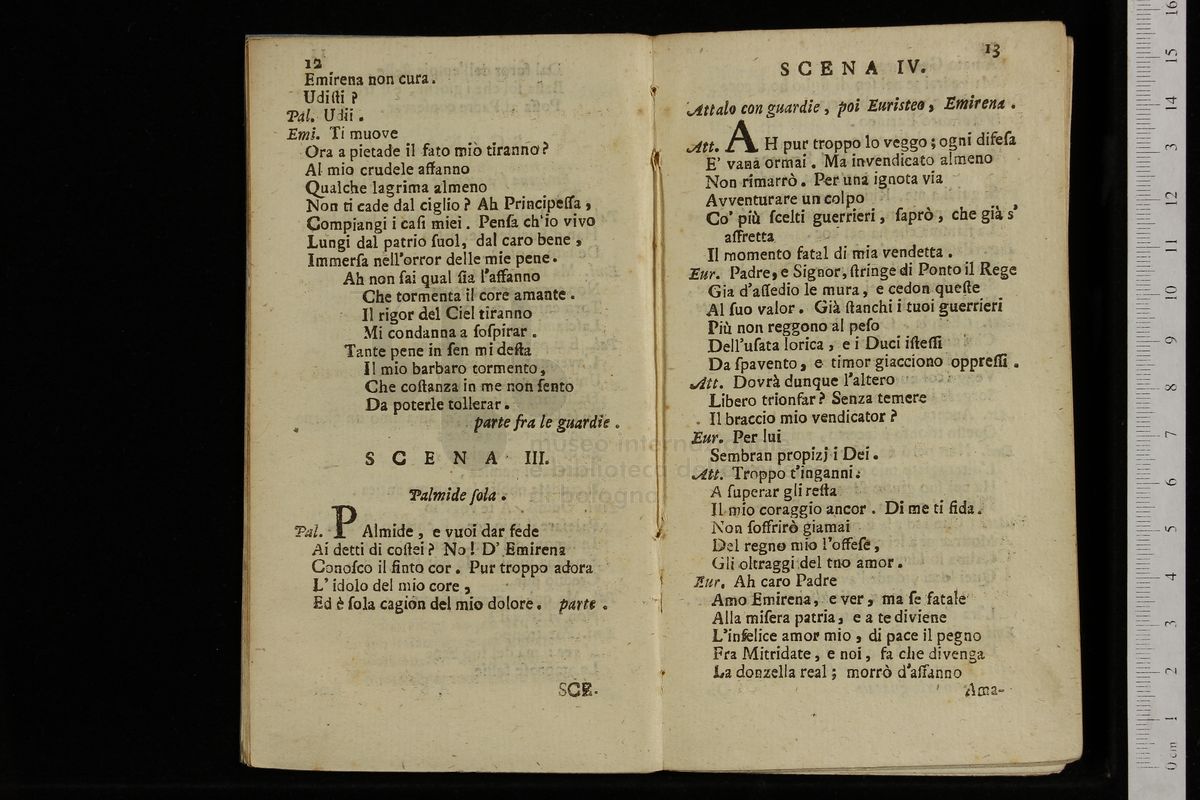 12
Emirena non cura.
Udiſti ?
Pal. Udii.
Emi. Ti muove
Ora a pietade il fato mio tiranno?
Al mio crudele affanno
Qualche lagrima almeno
Non ti cade dal ciglio ? Ah Principeſſa,
Compiangi i caſi miei. Penſa ch'io vivo
Lungi dal patrio ſuol, dal caro bene,
Immerſa nell'orror delle mie pene.
Ah non ſai qual ſia l'affanno
Che tormenta il core amante.
Il rigor del Ciel tiranno
Mi condanna a ſoſpirar.
Tante pene in ſen mi deſta
Il mio barbaro tormento,
Che coſtanza in me non ſento
Da poterle tollerar.
parte fra le guardie.
SCENA III.
Palmide ſola.
Pal. PAlmide, e vuoi dar fede
Ai detti di coſtei? No! D' Emirena
Conoſco il finto cor. Pur troppo adora
L' idolo del mio core,
Ed è ſola cagion del mio dolore. parte.
SCE-
13
SCENA IV.
Attalo con guardie, poi Euristeo, Emirena.
Att. AH pur troppo lo veggo; ogni difeſa
E' vana ormai. Ma invendicato almeno
Non rimarrò. Per una ignota via
Avventurare un colpo
Co' più ſcelti guerrieri, ſaprò, che già s'
affretta
Il momento fatal di mia vendetta.
Eur. Padre, e Signor, ſtringe di Ponto il Rege
Gia d'aſſedio le mura, e cedon queſte
Al ſuo valor. Già ſtanchi i tuoi guerrieri
Più non reggono al peſo
Dell'uſata lorica, e i Duci iſteſſi
Da ſpavento, e timor giacciono oppreſſi.
Att. Dovrà dunque l'altero
Libero trionfar? Senza temere
Il braccio mio vendicator ?
Eur. Per lui
Sembran propizj i Dei.
Att. Troppo t'inganni.
A ſuperar gli reſta
Il mio coraggio ancor. Di me ti fida.
Non ſoffrirò giamai
Del regno mio l'offeſe,
Gli oltraggi del tno amor.
Eur. Ah caro Padre
Amo Emirena, e ver, ma ſe fatale
Alla miſera patria, e a te diviene
L'infelice amor mio, di pace il pegno
Fra Mitridate, e noi, fa che divenga
La donzella real; morrò d'affanno
Ama-
museo internazionale
e biblioteca della
di bologna
0 cm 1 2 3 4 5 6 7 8 9 10 11 12 13 14 15 16